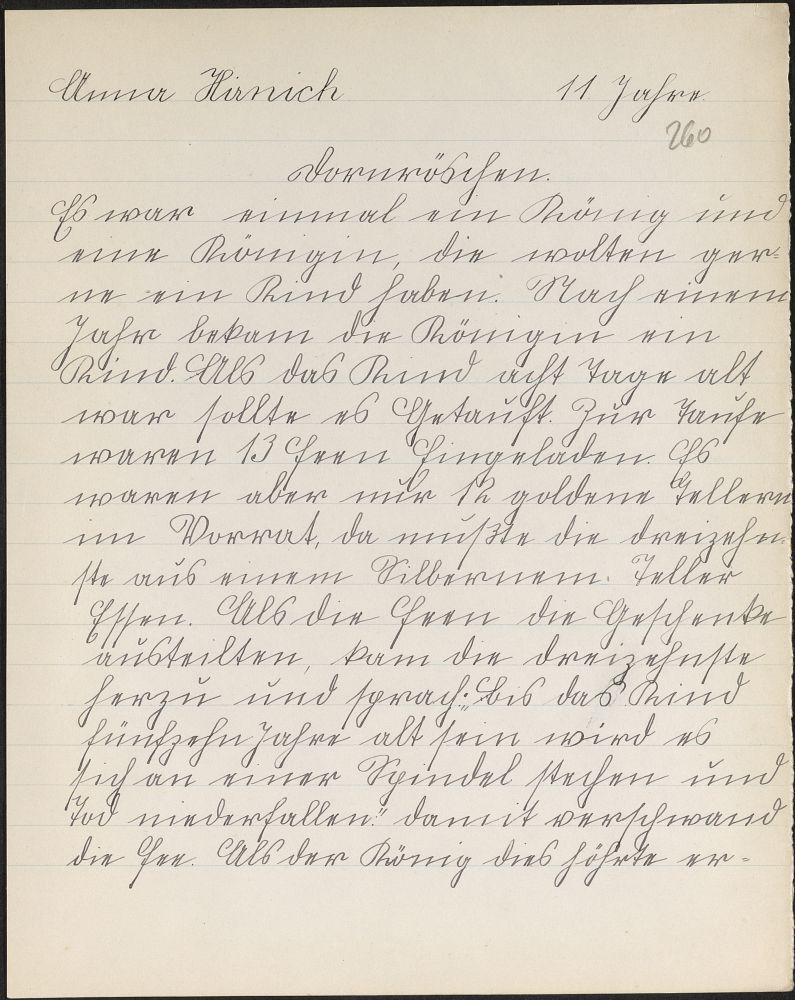 Anna Hanich 11 Jahre.
260
Dornröschen.
Es war einmal ein König und
eine Königin, die wolten ger=
ne ein Kind haben. Nach einem
Jahr bekam die Königin ein
Kind. Als das Kind acht Tage alt
war sollte es Getauft. Zur Taufe
waren 13 Feen Eingeladen. Es
waren aber nur 12 goldene Tellern
im Vorrat, da mußte die dreizehn=
ste aus einem Silbernem Teller
Essen. Als die Feen die Geschenke
austeilten, kam die dreizehnste
herzu und sprach: "Bis das Kind
fünfzehn Jahre alt sein wird es
sich an einer Spindel stechen und
Tod niederfallen." damit verschwand
die Fee. Als der König dies höhrte er=